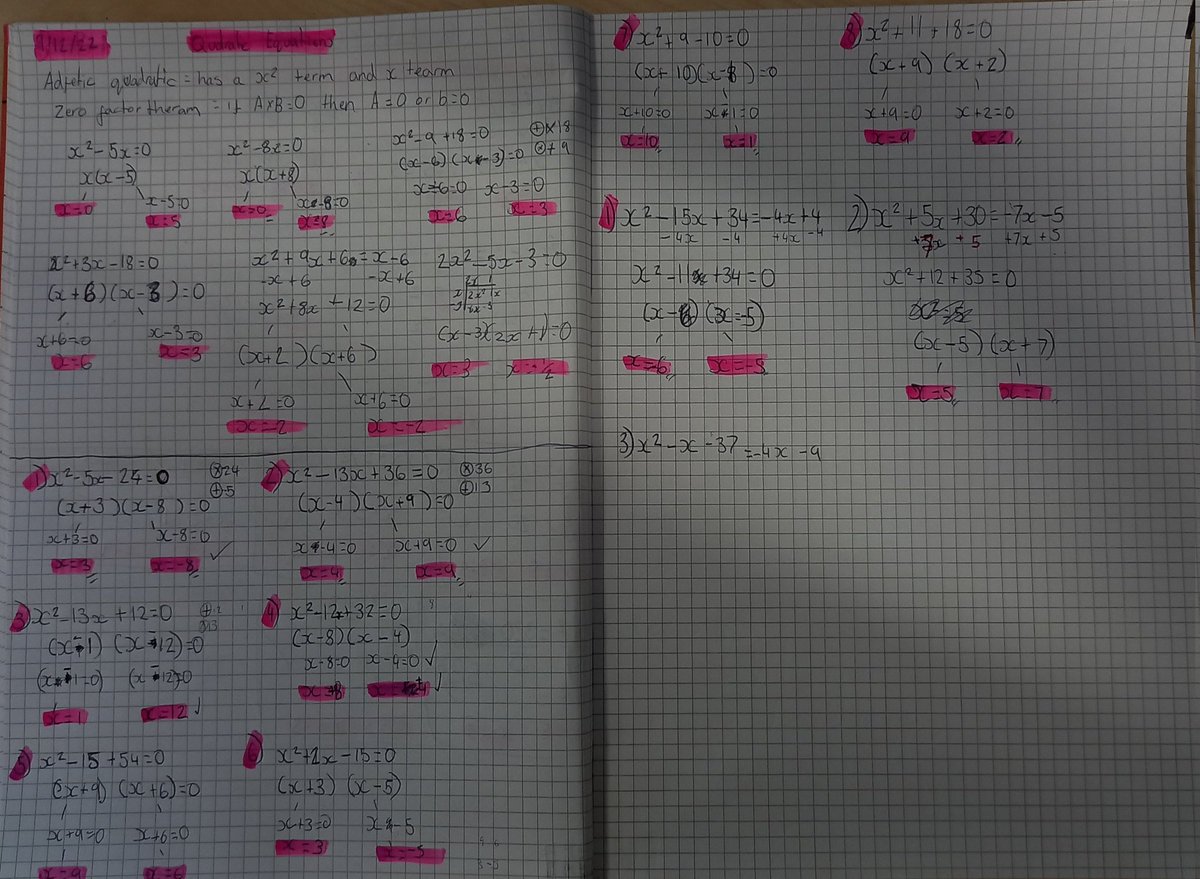 1/12/22 Qudratic Equations
Adfetic quadratic = has a x² term and x tearm
Zero factor theram = if A×B=0 then A=0 or b=0
x²-5x=0
x(x-5)
x=0 x-5=0
x=5
x²-8x=0
x(x+8)
x=0 x-8=0
x=8
x²-9+18=0 ⊕×18
(x-6)(x-3)=0 ⊗+9
x-6=0 x-3=0
x=6 x=3
x²+3x-18=0
(x+6)(x-3)=0
x+6=0 x-3=0
x=6 x=3
x²+9x+6=x-6
-x+6 -x+6
x²+8x+12=0
(x+2)(x+6)
x+2=0 x+6=0
x=-2 x=-2
2x²-5x-3=0
(x-3)(2x+1)=0
x=3 x=-½
1) x²-5x-24=0 ⊗24
(x+3)(x-8)=0 ⊕5
x+3=0 x-8=0
x=3 x=-8
2) x²-13x+36=0 ⊗36
(x-4)(x+9)=0 ⊕13
x-4=0 x+9=0
x=4 x=9
3) x²-13x+12=0
(x-1)(x-12)=0
(x-1=0) (x-12)=0
x=1 x=12
4) x²-12x+32=0
(x-8)(x-4)
x-8=0 x-4=0
x=8
5) x²-15+54=0
(x+9)(x+6)=0
x+9=0 x+6=0
x=9 x=6
6) x²+2x-15=0
(x+3)(x-5)
x+3=0 x-5
x=3 x=-5
7) x²+9-10=0
(x+10)(x-1)=0
x+10=0 x-1=0
x=10 x=1
8) x²+11+18=0
(x+9)(x+2)
x+9=0 x+2=0
x=9 x=2
1) x²-15x+34=-4x+4
-4x -4 +4x -4
x²-11x+34=0
(x-6)(x-5)
x=6 x=-5
2) x²+5x+30=-7x-5
+7x +5 +7x +5
x²+12+35=0
(x-5)(x+7)
x=5 x=7
3) x²-x-37=-4x-9